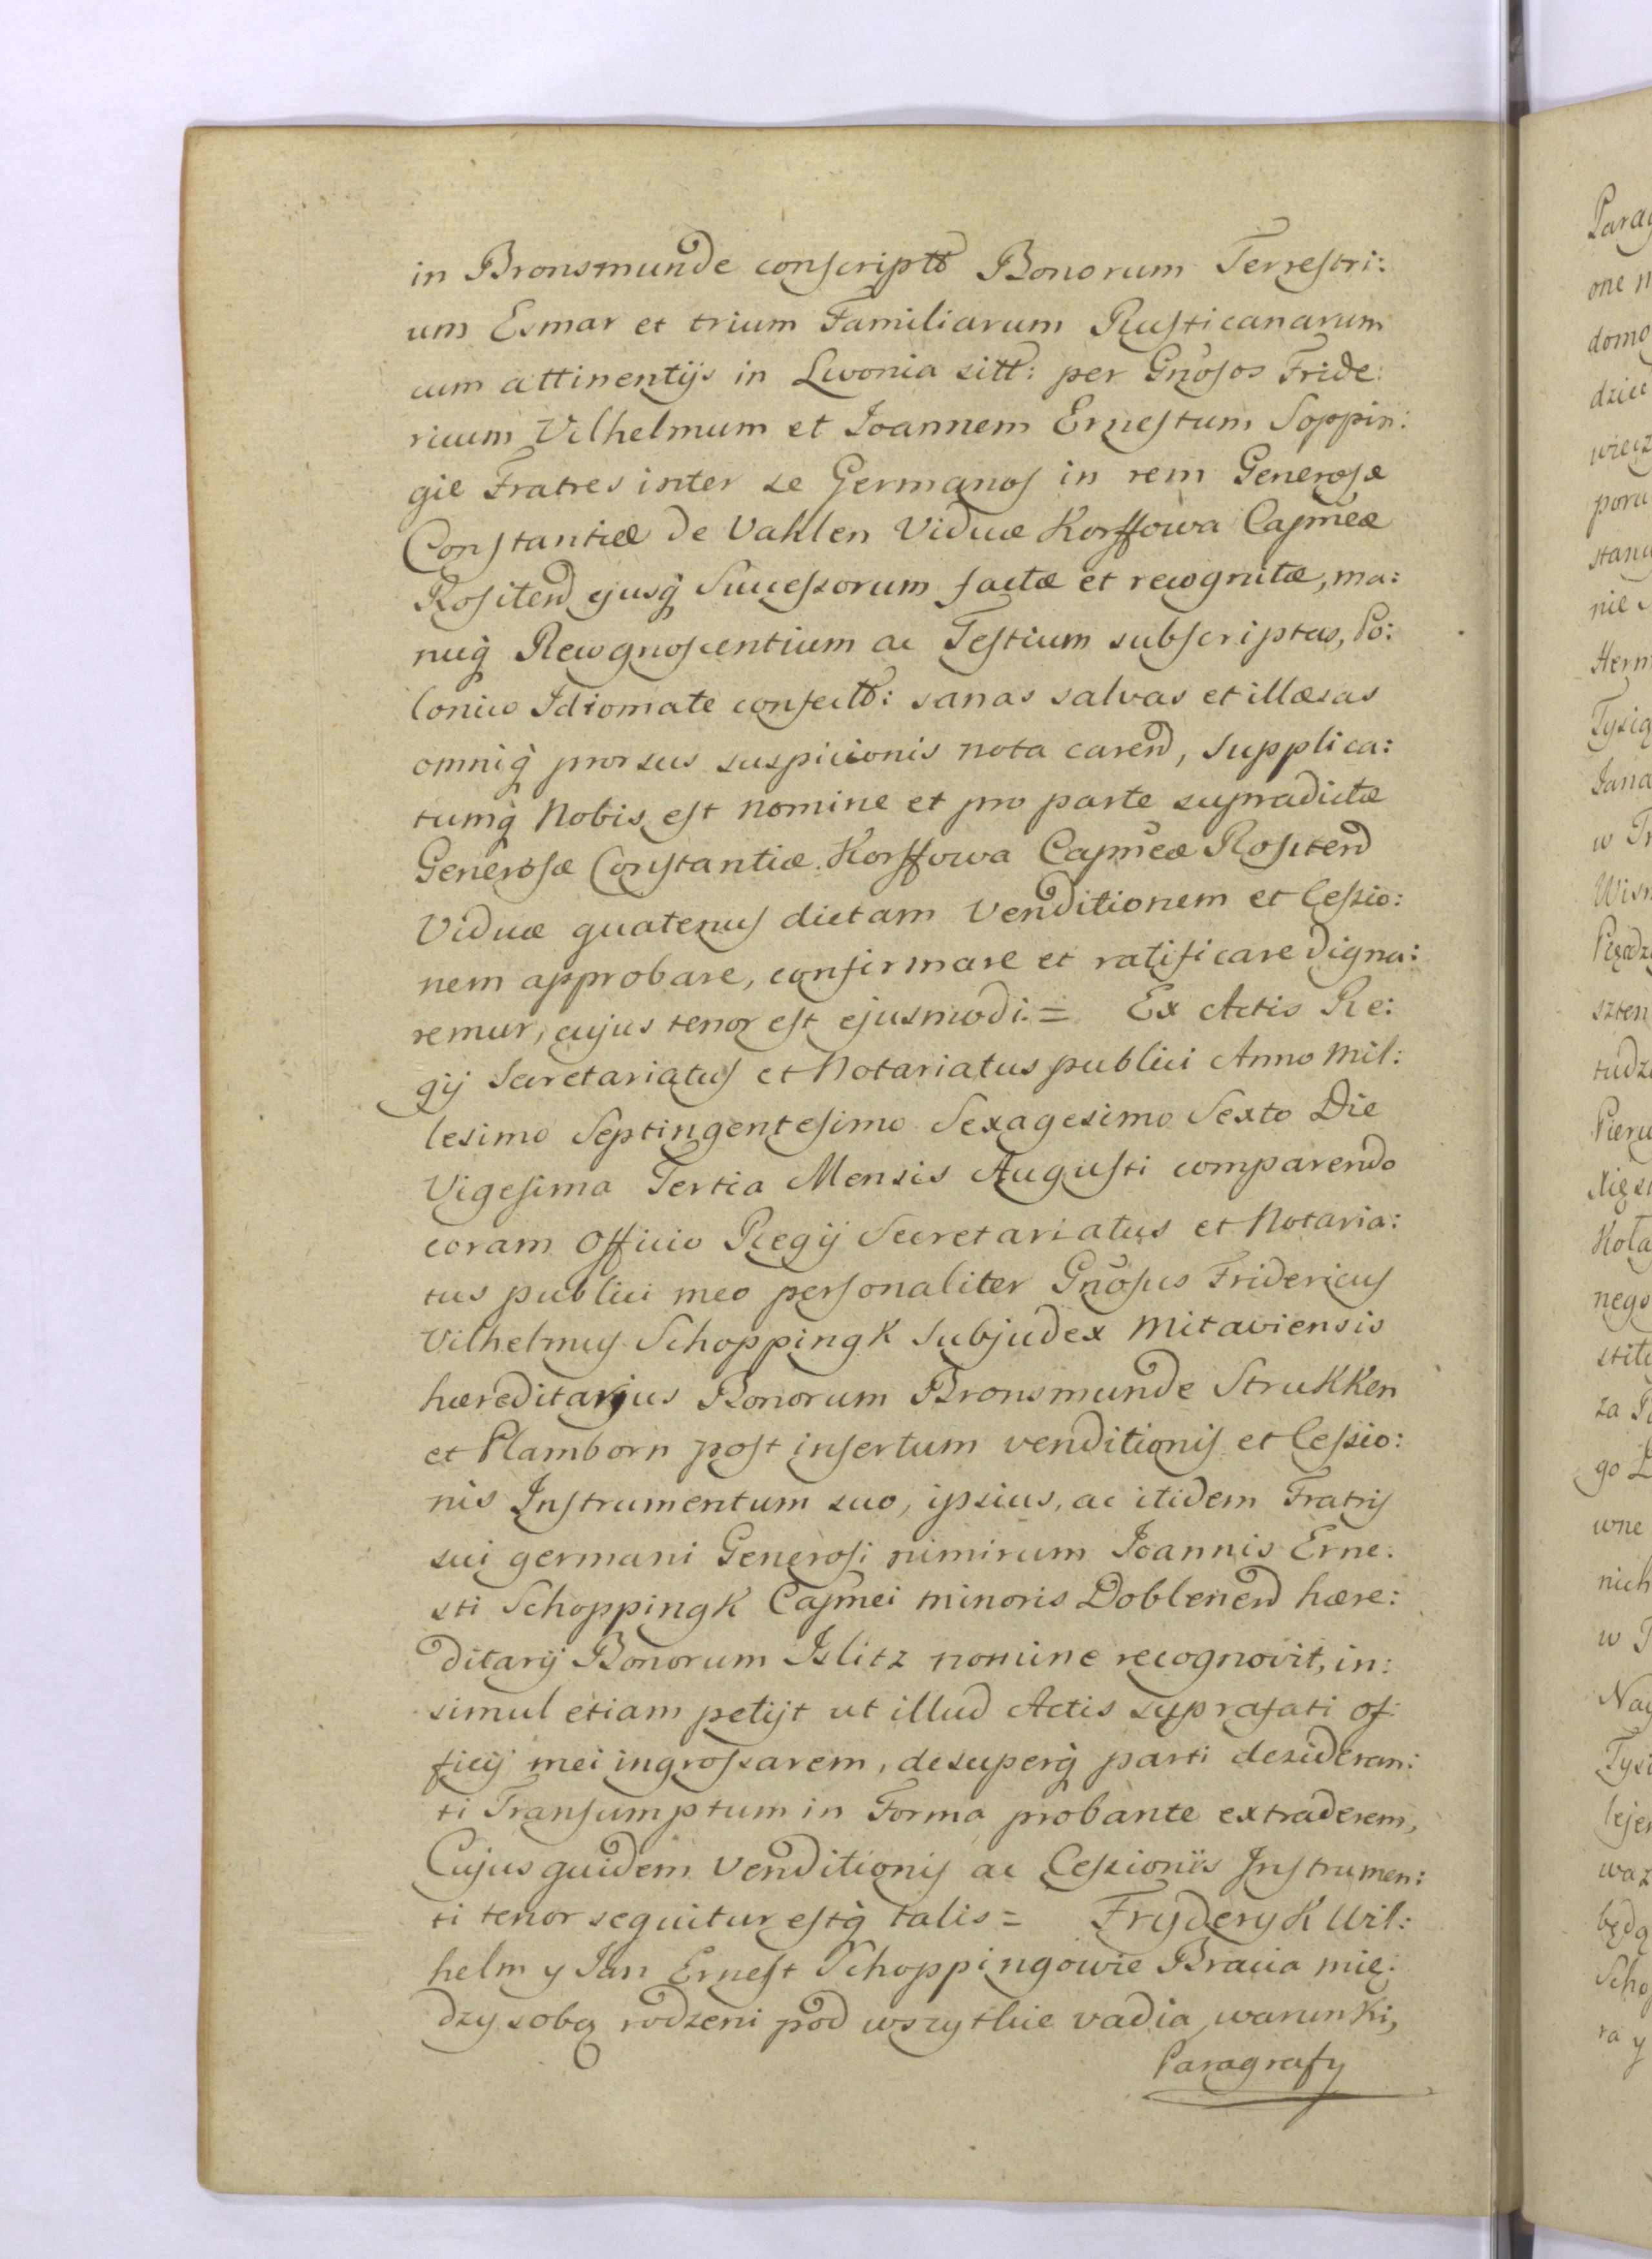 in Bronsmunde conscriptt Bonorum Terrestri:
um Esmar et trium Familiarum Rusticanarum
cum attinentijs in Livonia sitt: per Gnosos Fride:
ricum Vilhelmum et Joannem Ernestum Soppin:
gie Fratres inter se Germanos in rem Generosæ
Constantiæ de Vahlen Viduæ Korffowa Capneæ
Rositen ejusq Successorum factæ et recognitæ, ma:
nuq Recognoscentium ac Testium subscriptas, Po:
lonico Idiomate confectt: sanas salvas et illæsas
omniq prorsus suspicionis nota caren, supplica:
tumq Nobis est nomine et pro parte supradictæ
Generosæ Constantiæ Korffowa Capneæ Rositen
Viduæ quatenus dictam Venditionem et Cessio:
nem approbare, confirmare et ratificare digna:
remur, cujus tenor est ejusmodi = Ex Actis Re:
gij Secretariatus et Notariatus publici Anno Mil:
lesimo Septingentesimo Sexagesimo Sexto Die
Vigesima Tertia Mensis Augusti comparendo
coram Officio Regij Secretariatus et Notaria:
tus publici meo personaliter Gnosus Fridericus
Vilhelmus Schoppingk Subjudex Mitaviensis
hæreditarius Bonorum Bronsmunde Strukken
et Plamborn post insertum venditionis et Cessio:
nis Instrumentum suo, ipsius, ac itidem Fratris
sui germani Generosi nimirum Joannis Erne:
sti Schoppingk Capnei minoris Doblenen hære:
ditarij Bonorum Islitz nomine recognovit, in:
simul etiam petijt ut illud Actis suprafati of:
ficij mei ingrossarem, desuperq parti desideran:
ti Transumptum in Forma probante extraderem,
Cujus quidem Venditionis ac Cessionis Instrumen:
ti tenor sequitur estq talis = Fryderyk Wil:
helm y Jan Ernest Schoppingowie Bracia mię:
dzy sobą rodzeni pod wszytkie vadia, warunki,
Paragrafy